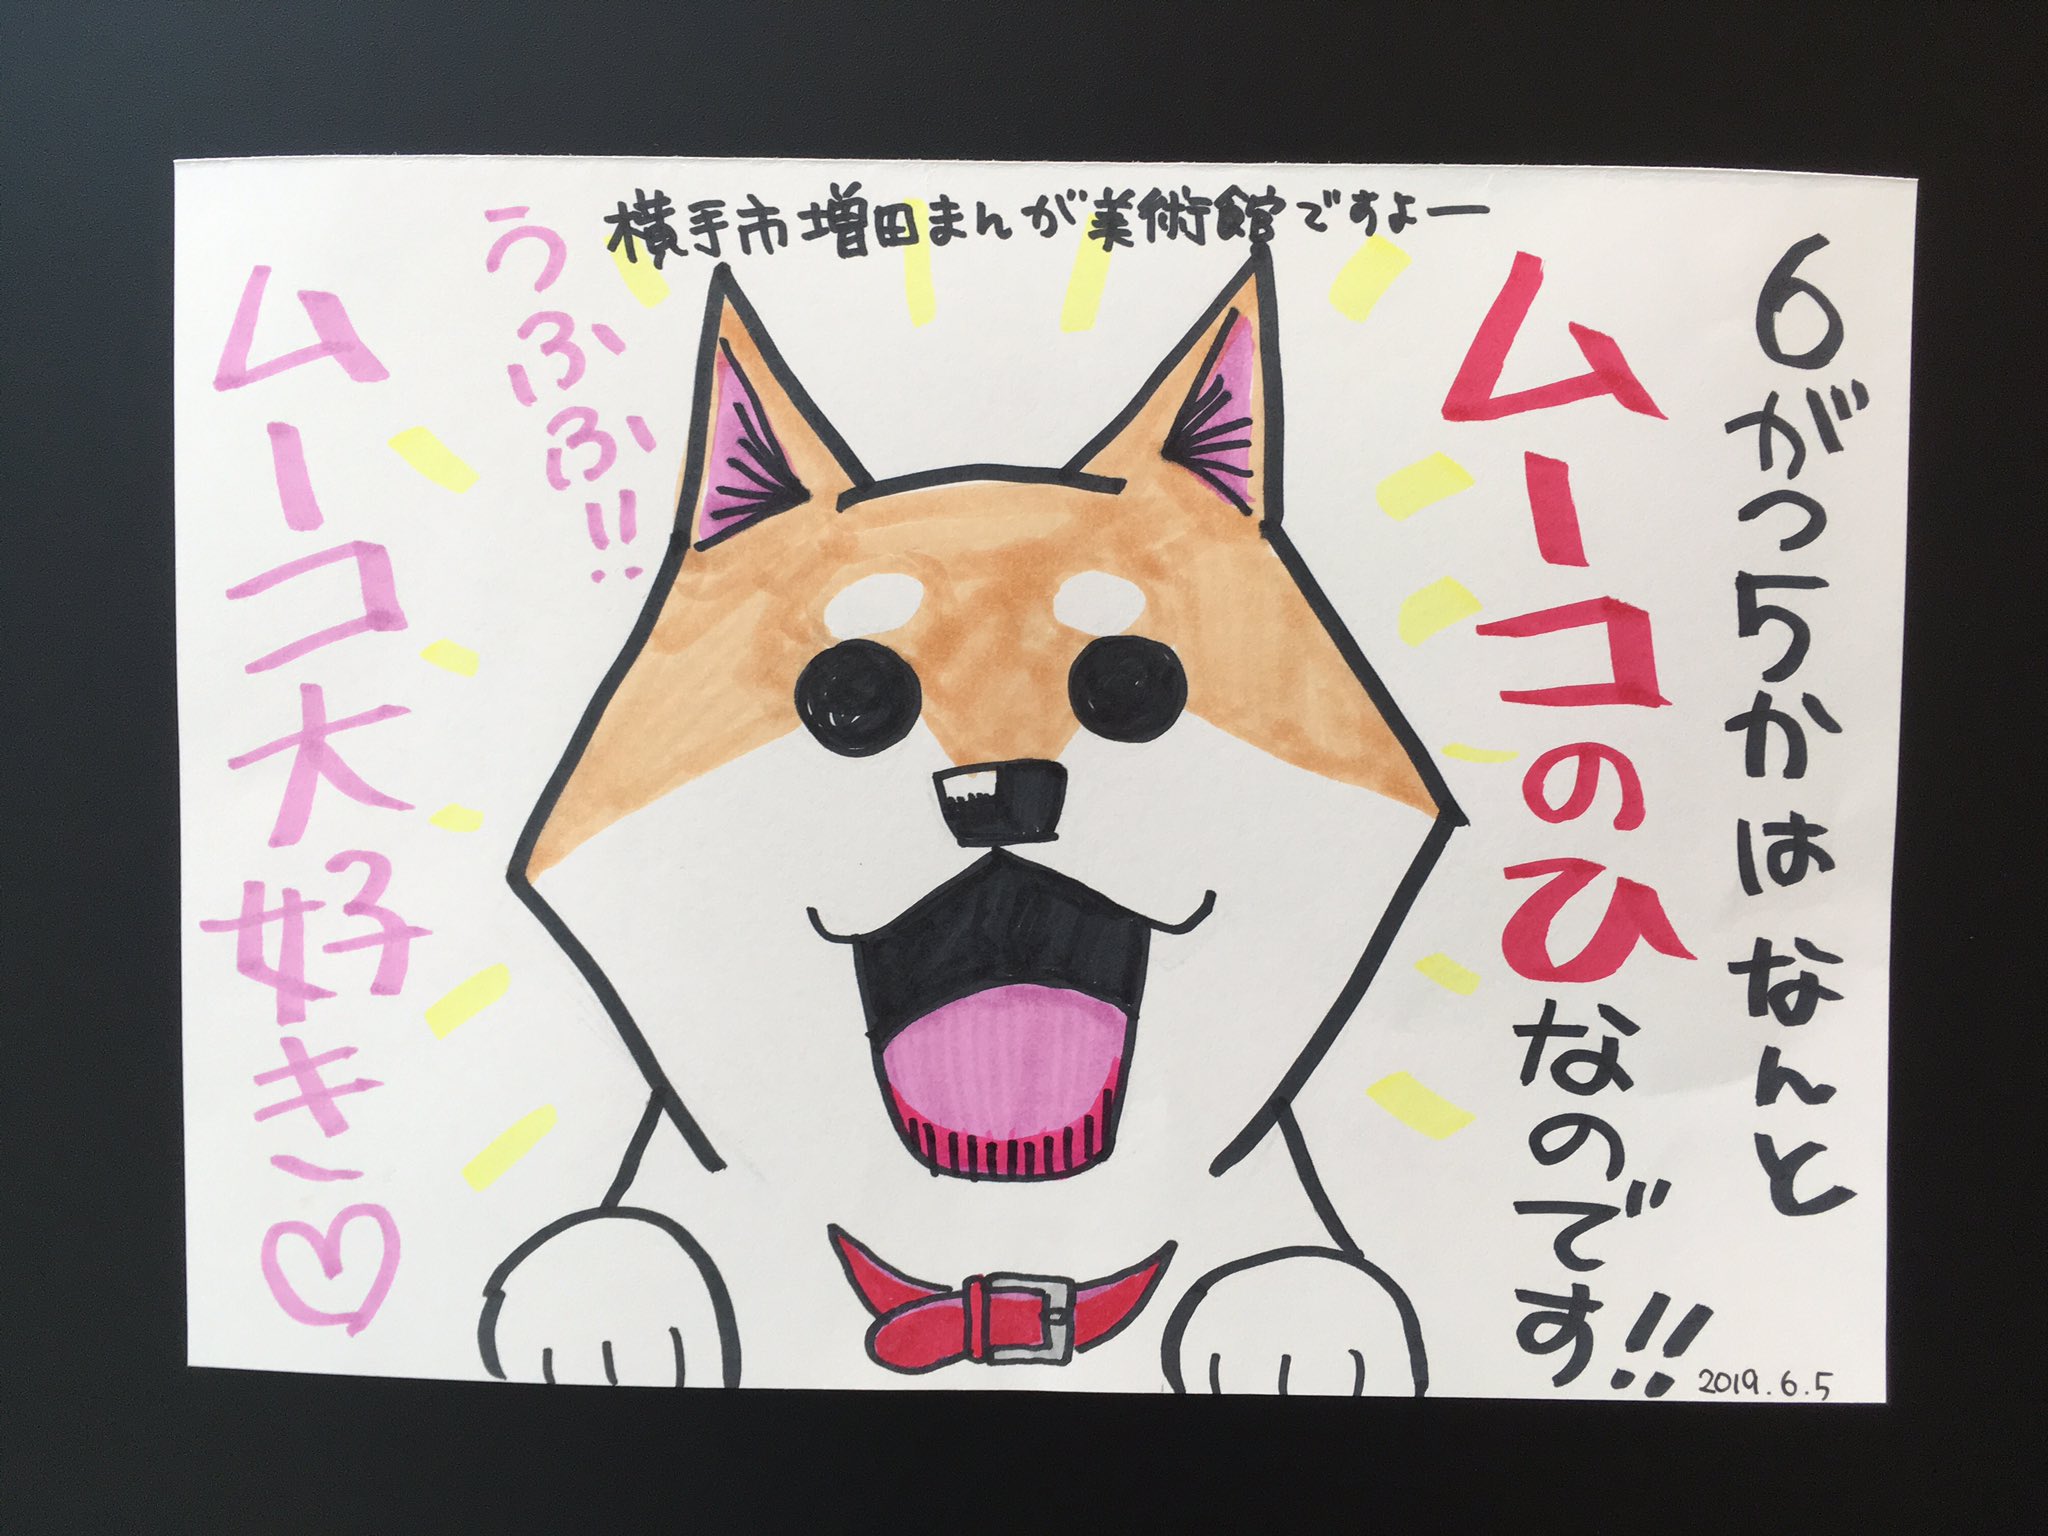 横手市増田まんが美術館ですよー
6がつ5かはなんと
ムーコのひなのです!!
うふふふ!!
ムーコ大好き♡
2019.6.5